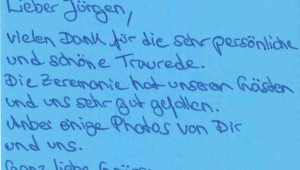 Lieber Jürgen,
vielen Dank für die sehr persönliche
und schöne Traurede.
Die Zeremonie hat unseren Gästen
und uns sehr gut gefallen.
Anbei einige Photos von Dir
und uns.
Ganz liebe Grüsse